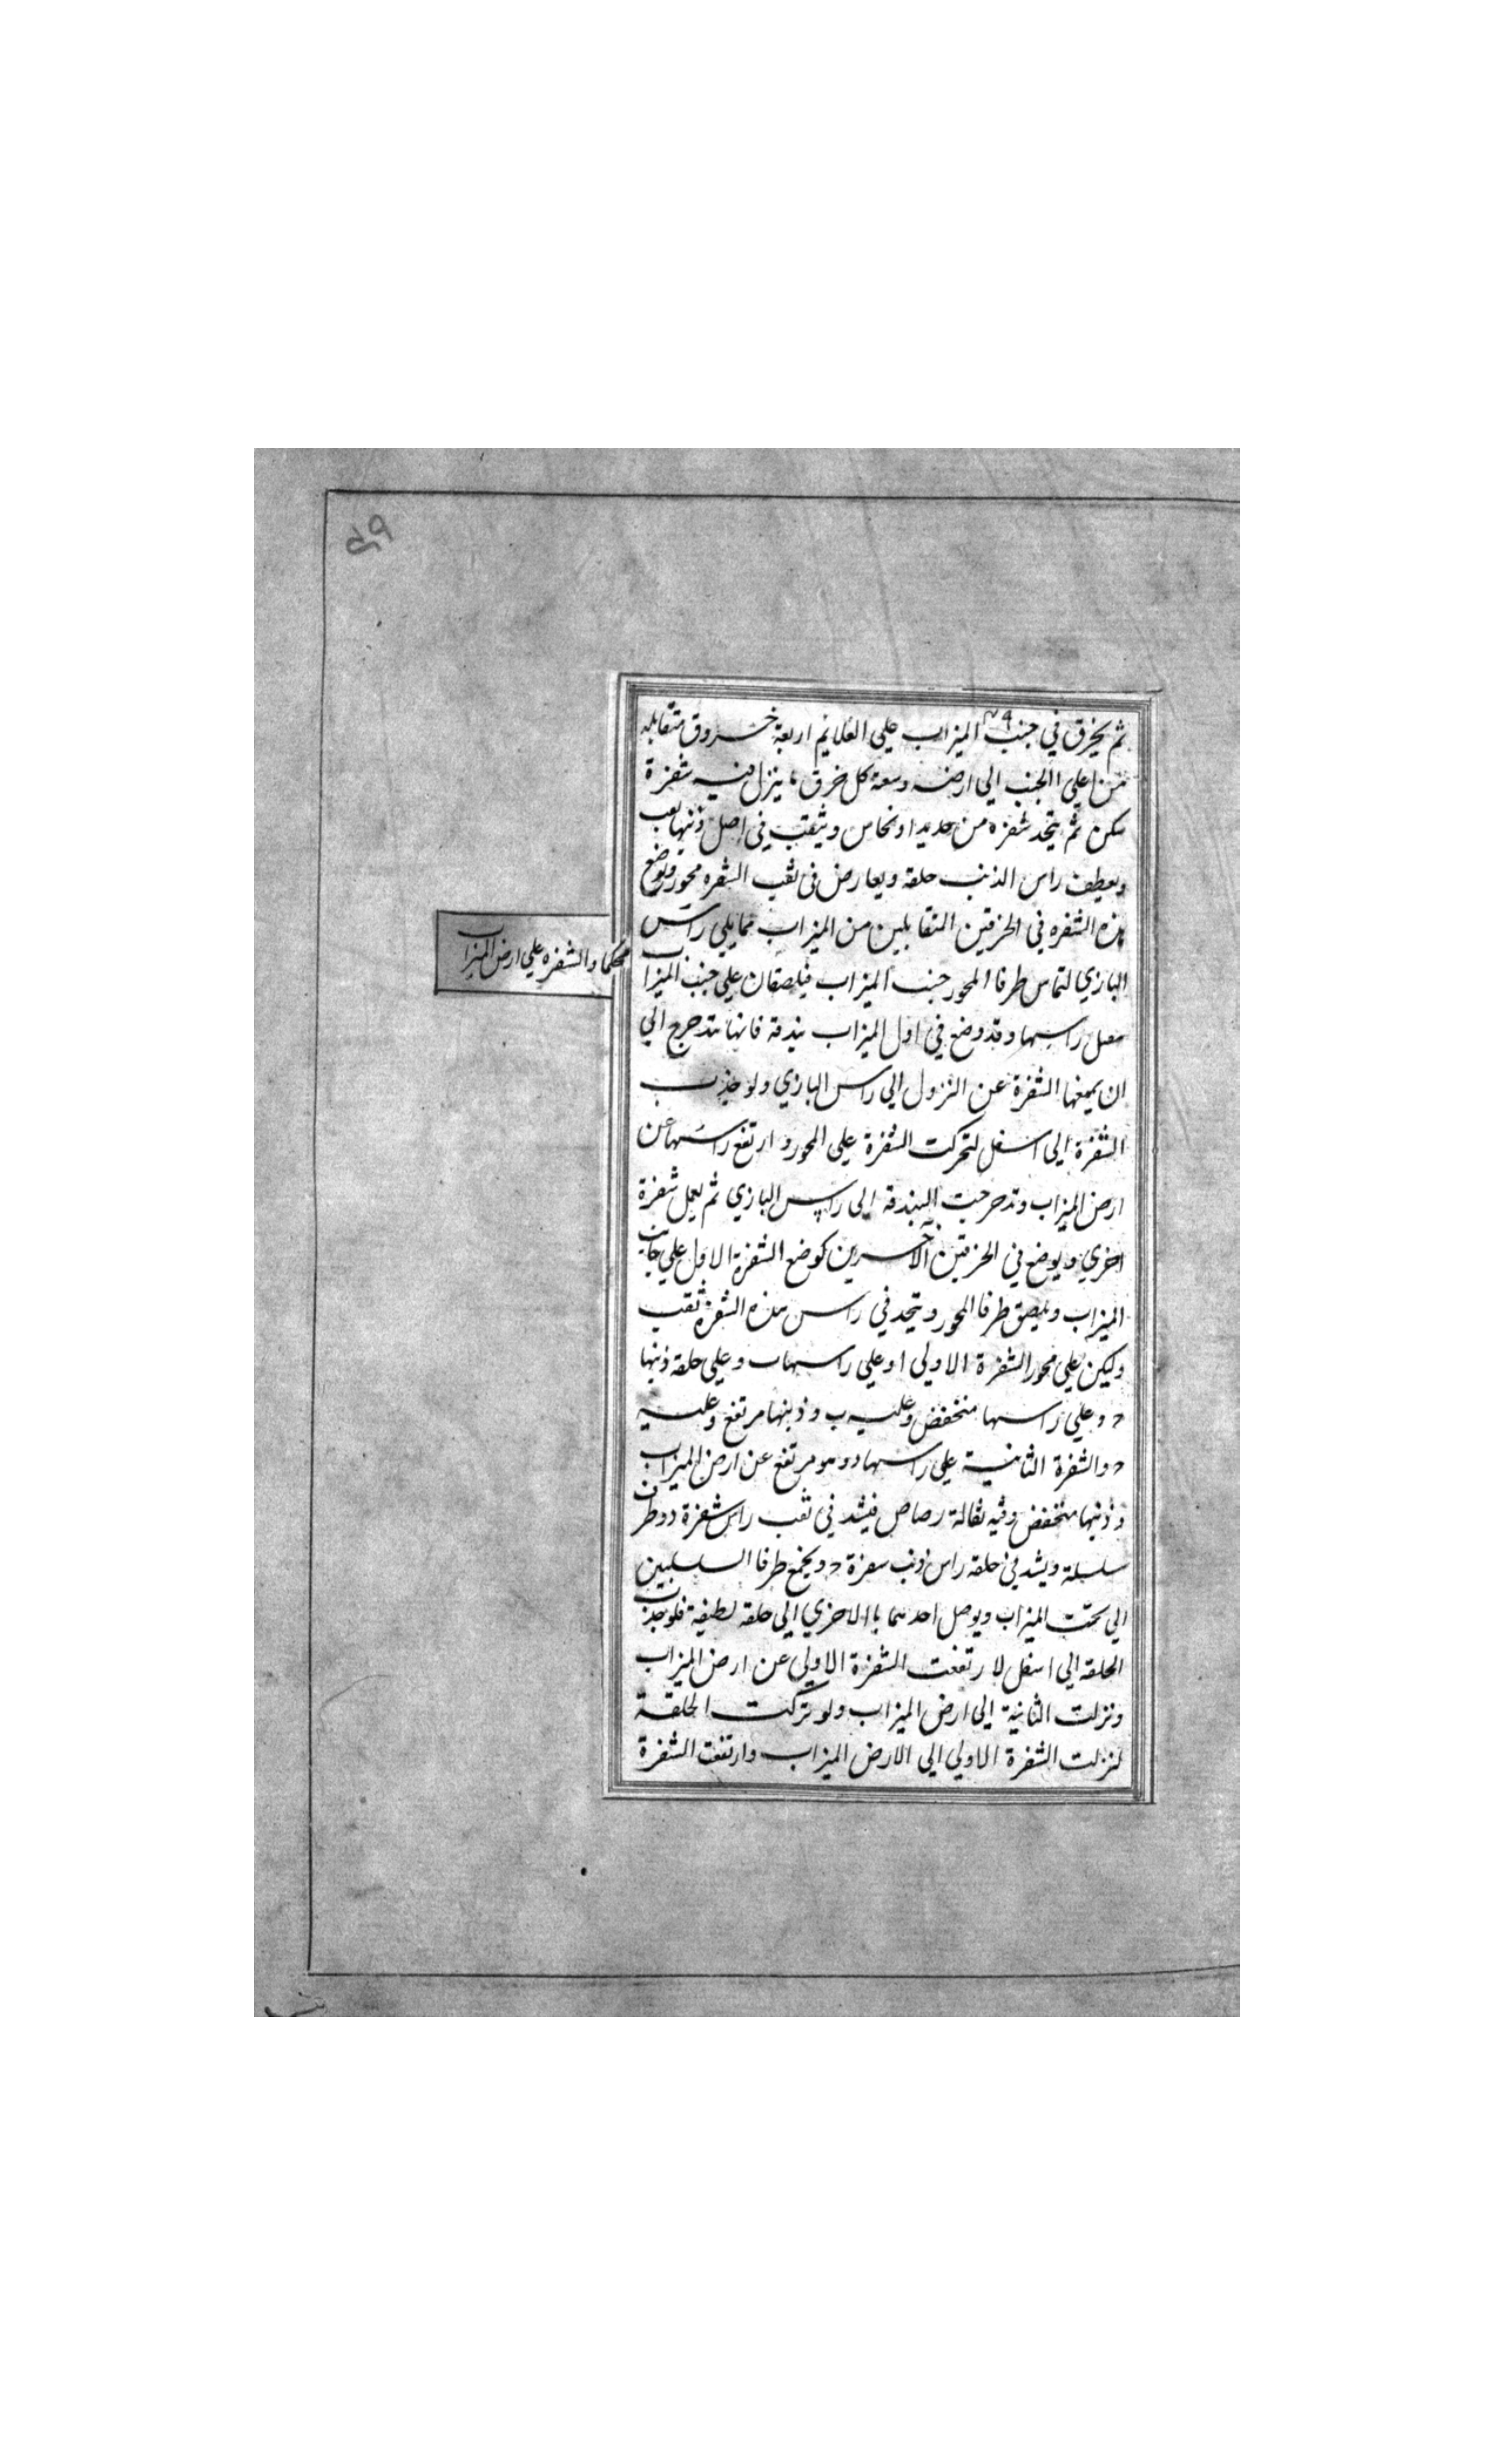 ٤٩
ثم يخرق في جنب الميزاب علي القائم اربعة خروق متقابله
من اعلي الجنب الي ارضه وسعة كل خرق ما ينزل فيه شفرة
سكين ثم يتخد شفره من حديد او نحاس ويثقب في اصل ذنبها ثقب
ويعطف راس الذنب حلقه ويعارض في ثقب الشفره محور وتوضع
هذه الشفره في الخرقين المتقابلين من الميزاب مما يلي راس
البازي لتماس طرفا المحور جنب الميزاب فيلصقان علي جنب الميزاب
محكما والشفره علي ارض الميزاب
راسها وقد وضع في اول الميزاب بندقة فانها تتدحرج الي
ان يمنعها الشفرة عن النزول الي راس البازي ولو جذب
الشفرة الي اسفل لتحركت الشفرة علي المحور وارتفع راسها عن
ارض الميزاب وتدحرجت البندقة الي راس البازي ثم يعمل شفرة
اخري ويوضع في الخرقين الاخرين كوضع الشفرة الاول علي جانب
الميزاب ويلصق طرفا المحور ويتخد في راس هذه الشفرة ثقب
وليكن علي محور الشفرة الاولي ا وعلي راسها ب وعلي حلقه ذنبها
د وعلي راسها منخفض وعليه ب وذنبها مرتفع وعليه
د والشفرة الثانية علي راسها د وهو مرتفع عن ارض الميزاب
وذنبها منخفض وفيه ثقالة رصاص فيشد في ثقب راس شفرة د وطرف
سلسلة ويشد في حلقه راس ذنب سفرة د ويجمع طرفا السلسلين
الي تحت الميزاب ويوصل احدهما باالاخري الي حلقه لطيفة فلو جذبت
الحلقه الي اسفل لارتفعت الشفرة الاولي عن ارض الميزاب
ونزلت الثانية الي ارض الميزاب ولو تركت الحلقة
لنزلت الشفرة الاولي الي الارض الميزاب وارتفعت الشفرة